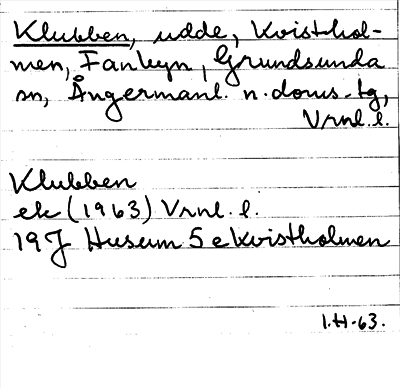 Klubben, udde, Kvisthol-
men, Fanbyn, Grundsunda
sn, Ångermanl. n. doms.-tg,
Vrnl. l.
Klubben
ek (1963) Vrnl. l.
19J Husum 5 e Kvistholmen
1.H.-63.